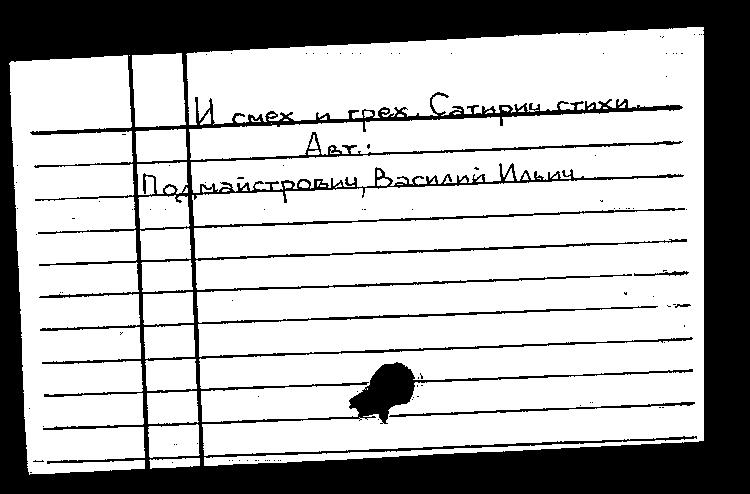 И смех и грех. Сатирич. стихи.
Авт.:
Подмайстрович, Василий Ильич.